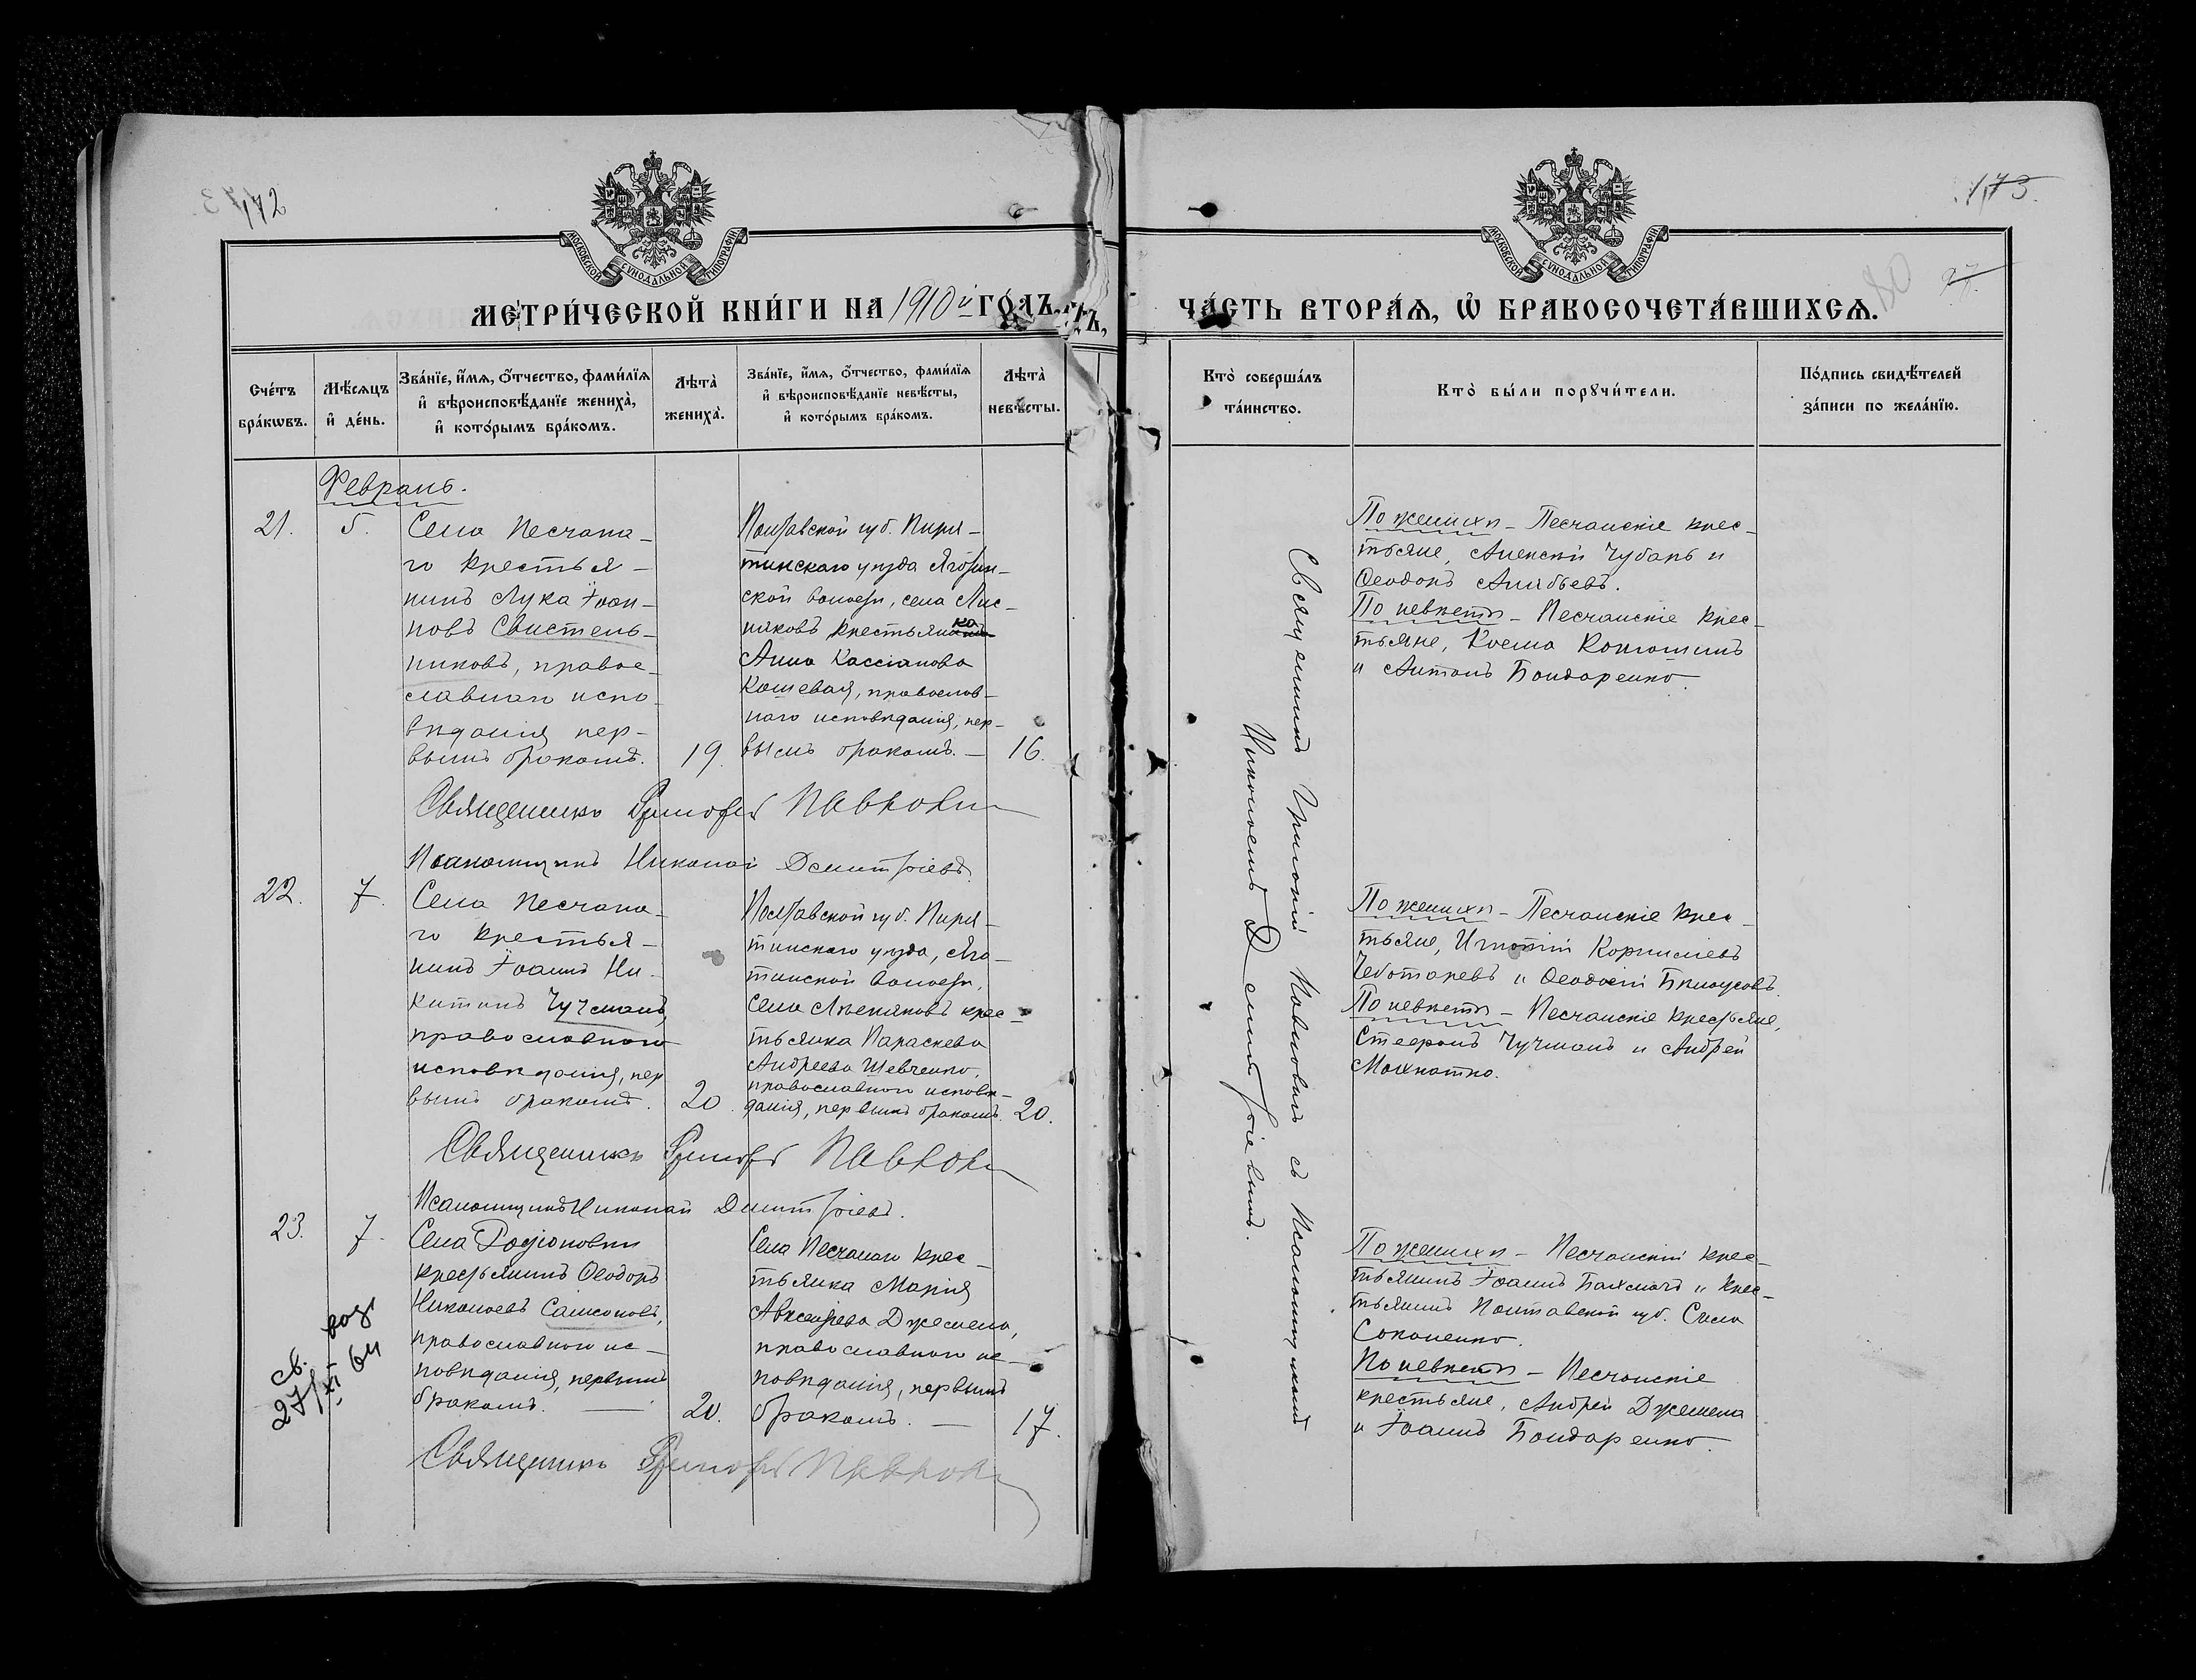 172
МОСКОВСКОЙ СѴНОДАЛЬНОЙ ТИПОГРАФІИ
МЕТРИ́ЧЕСКОЙ КНИ́ГИ НА 1910й ГО́ДЪ,
Сче́тъ бра́кωвъ.
Мѣ́сѧцъ и҆ де́нь.
Зва́нїе, и҆́мѧ, ѻ҆́тчество, фами́лїѧ
и҆ вѣроисповѣ́данїе жениха̀,
и҆ кото́рымъ бра́комъ.
Лѣта̀ жениха̀.
Зва́нїе, и҆́мѧ, ѻ҆́тчество, фами́лїѧ
и҆ вѣроисповѣ́данїе невѣ́сты,
и҆ кото́рымъ бра́комъ.
Лѣта̀ невѣ́сты.
Февраль.
21.
5.
Села Песчана-
го крестья-
нинъ Лука Іоан-
новъ Свистель-
никовъ, право-
славнаго испо-
вѣданія пер-
вымъ бракомъ.
19.
Полтавской губ. Пиря-
тинскаго уѣзда Яготин-
ской волости, села Лис-
няковъ крестьянка
Анна Кассіанова
Кошевая, православ-
наго исповѣданія, пер-
вымъ бракомъ. —
16.
Священникъ Григорій Павлович
Псаломщикъ Николай Дмитріевъ.
22.
7.
Села Песчана-
го крестья-
нинъ Іоаннъ Ни-
китинъ Чучманъ,
православнаго
исповѣданія, пер
вымъ бракомъ.
20.
Полтавской губ. Пиря-
тинскаго уѣзда, Яго-
тинской волости,
села Лѣсняковъ крес-
тьянка Параскева
Андреева Шевченко,
православнаго исповѣ-
данія, первымъ бракомъ.
20.
Священникъ Григорій Павлович
Псаломщикъ Николай Дмитріевъ.
23.
7.
Села Родіоновки
крестьянинъ Ѳеодоръ
Николаевъ Самсоновъ,
православнаго ис-
повѣданія, первымъ
бракомъ. —
20.
Села Песчанаго крес-
тьянка Марія
Авксентіева Джемела,
православнаго ис-
повѣданія, первымъ
бракомъ. —
17.
Священникъ Григорій Павлович
св.
27/XI 64
173.
МОСКОВСКОЙ СѴНОДАЛЬНОЙ ТИПОГРАФІИ
80
ЧА́СТЬ ВТОРА́Ѧ, Ѽ БРАКОСОЧЕТА́ВШИХСѦ.
Кто̀ соверша́лъ та́инство.
Кто̀ бы́ли порꙋчи́тели.
По́дпись свидѣ́телей
за́писи по жела́нїю.
Священникъ Григорій Павловичъ съ Псаломщикомъ
Николаемъ Дмитріевымъ.
По женихѣ - Песчанскіе крес-
тьяне, Алексій Чубань и
Ѳеодоръ Алябьевъ.
По невѣстѣ - Песчанскіе крес-
тьяне, Косма
и Антонъ Бондаренко.
По женихѣ - Песчанскіе крес-
тьяне, Игнатій Корниліевъ
Чеботаревъ и Ѳеодосій Бѣлоусовъ.
По невѣстѣ - Песчанскіе крестьяне,
Стефанъ Чучманъ и Андрей
Махнатко.
По женихѣ - Песчанскій крес-
тьянинъ Іоаннъ Бахмачъ и крес-
тьянинъ Полтавской губ. Сила
Соколенко.
По невѣстѣ - Песчанскіе
крестьяне, Андрей Джемела
и Іоаннъ Бондаренко.